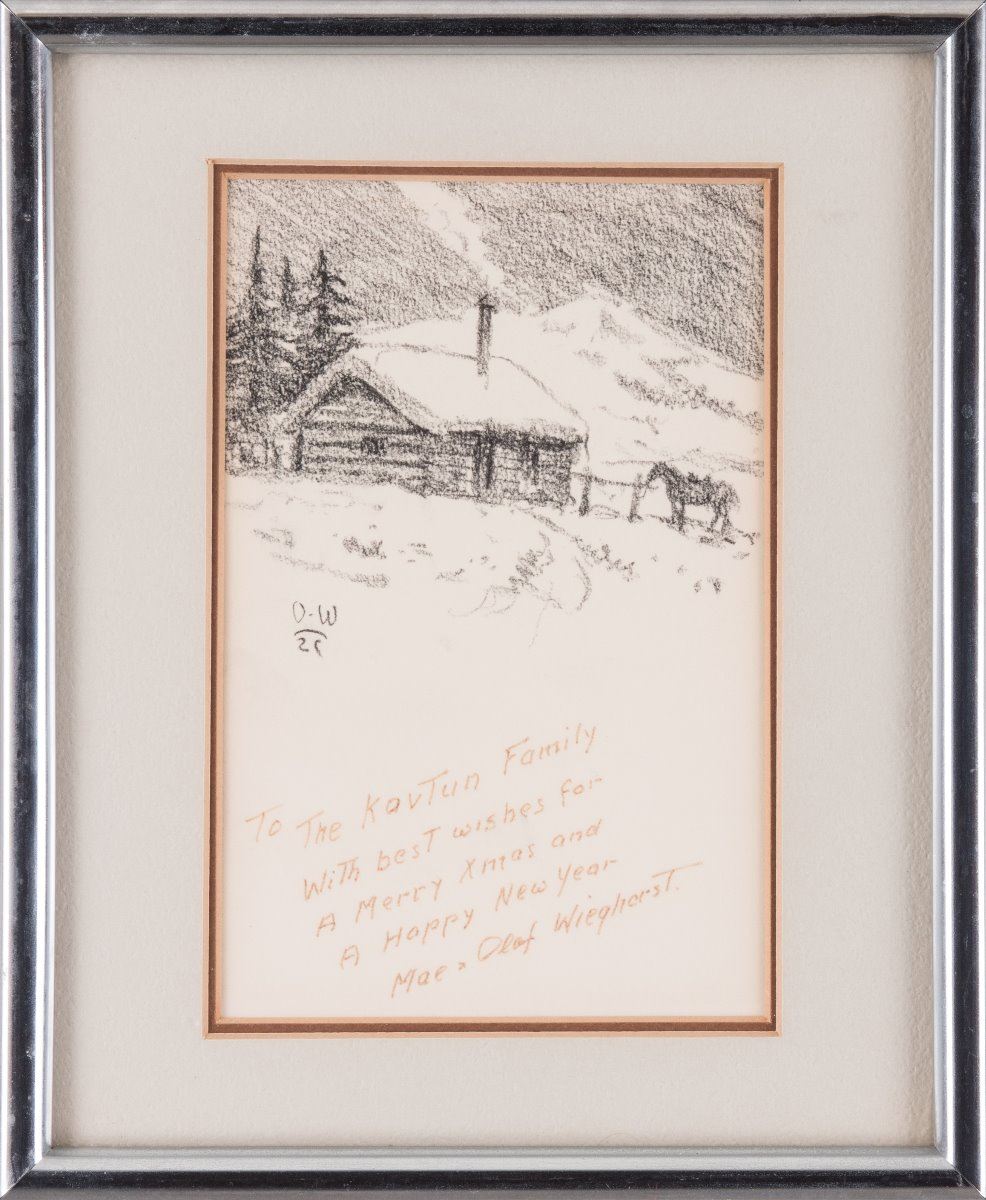 O-W
To The KovTun Family
With best wishes for
A Merry Xmas and
A Happy New Year
Mae & Olaf Wieghorst.